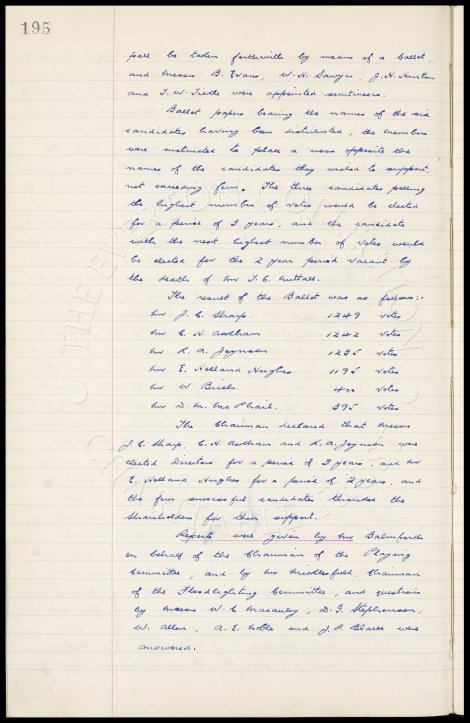 195
poll be taken forthwith by means of a ballot,
and Messrs B. Evans, W. H. Sawyer, J. H. Newton
and T. W. were appointed scrutineers.
Ballot papers bearing the names of the six
candidates having been distributed, the members
were instructed to place a cross opposite the
names of the candidates they wished to support,
not exceeding four. The three candidates polling
the highest number of votes would be elected
for a period of 3 years, and the candidate
with the next highest number of votes would
be elected for the 2 year period vacant by
the death of Mr T. C. Nuttall.
The result of the Ballot was as follows:-
Mr J. C. Sharp. 1249 votes
Mr C. H. Askham 1242 votes
Mr R. A. Joynson 1235 votes
Mr E. Holland Hughes 1195 votes
Mr W. Birch. 400 votes
Mr D. M. McPhail. 395 votes
The Chairman declared that Messrs
J. C. Sharp, C. H. Askham and R. A. Joynson were
elected Directors for a period of 3 years, and Mr
E. Holland Hughes for a period of 2 years, and
the four successful candidates thanked the
Shareholders for their support.
Reports were given by Mr Balmforth
on behalf of the Chairman of the Playing
Committee, and by Mr Micklesfield, Chairman
of the Floodlighting Committee, and questions
by Messrs W. C. Macauley, D. G. Stephenson,
W. Allen, A. E. Noble and J. P. were
answered.